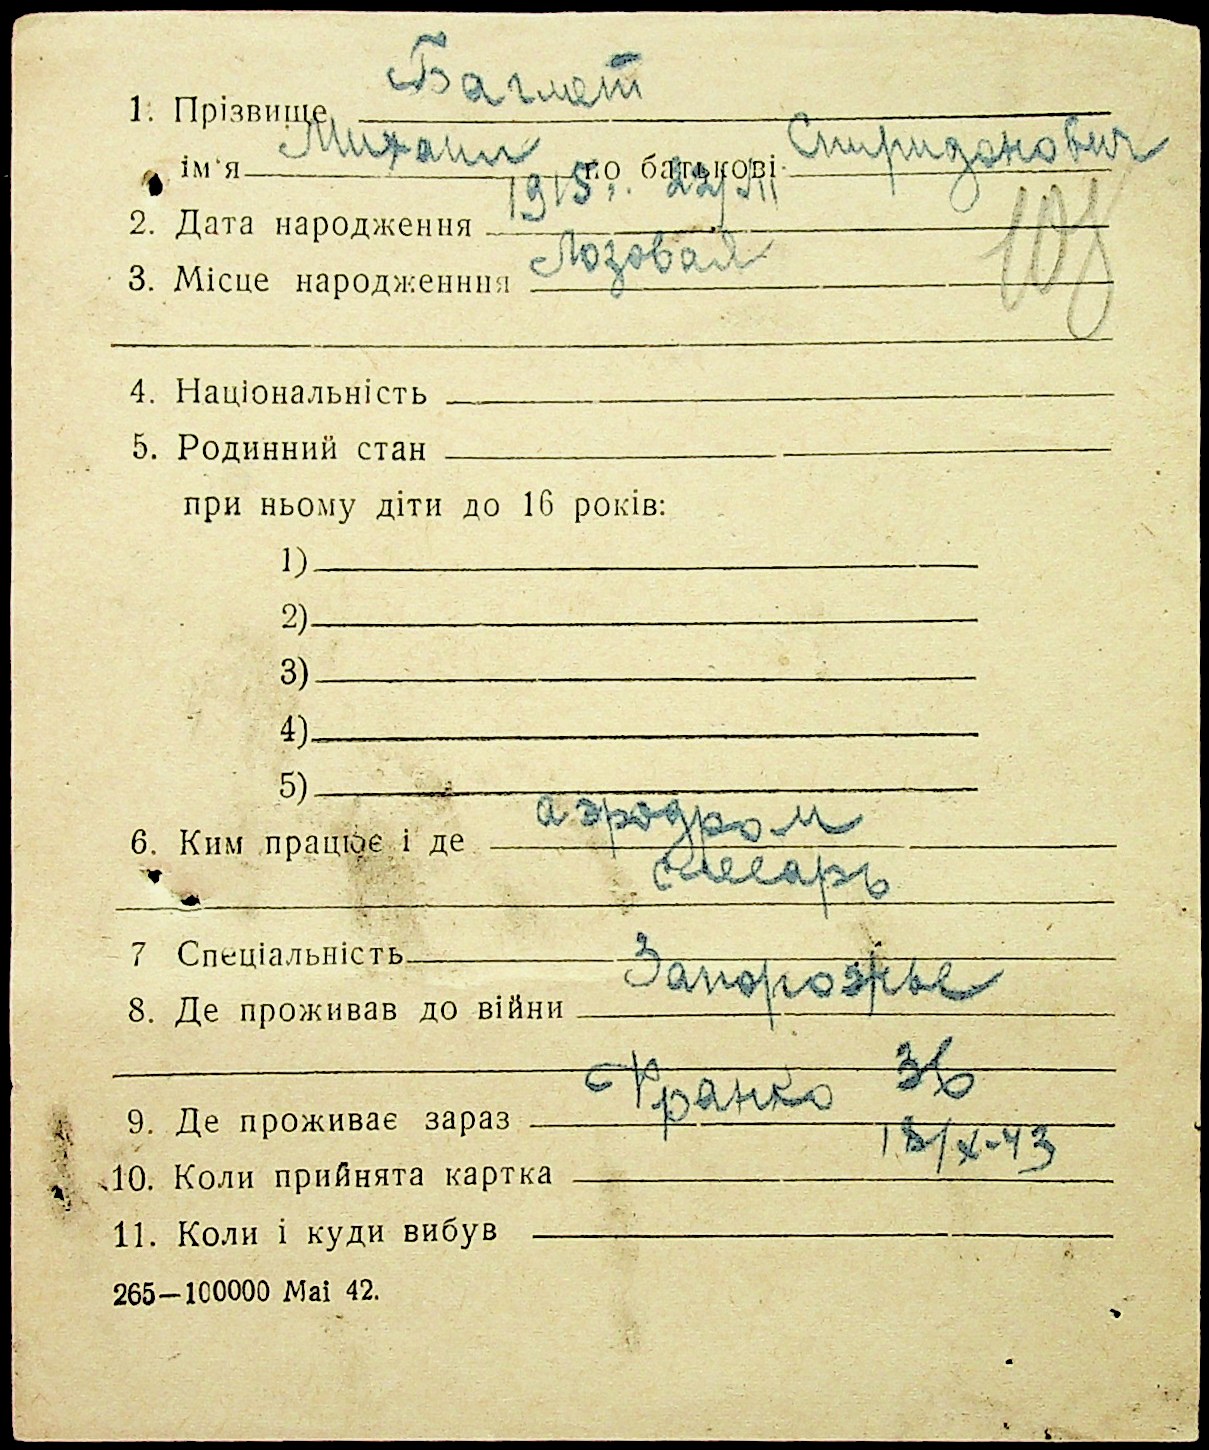 1. Прізвище Баглет
ім'я Михаил по батькові Спиридонович
2. Дата народження 1915 г. 22/XII
3. Місце народженння Лозовая
4. Національність
5. Родинний стан
при ньому діти до 16 років:
1)
2)
3)
4)
5)
6. Ким працює і де аэродром
слесарь
7 Спеціальність
8. Де проживав до війни Запорожье
9. Де проживає зараз Франко 36
10. Коли прийнята картка 18/X-43
11. Коли і куди вибув
265—100000 Mai 42.